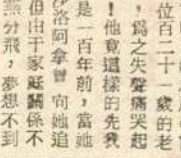 位百二十一歲的老
，爲之失聲痛哭起
！他竟這樣的先我
是一百年前，當她
沙洛阿拿曾向她追
但由于家庭關係不
燕分飛，夢想不到